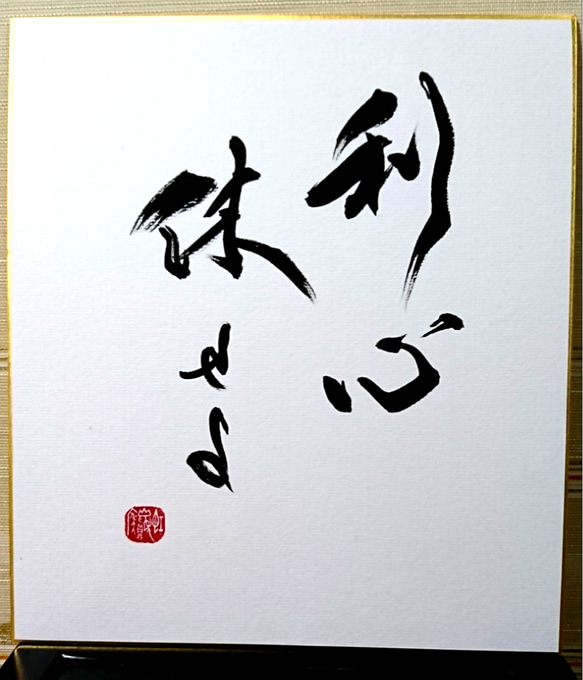 利心
休せよ